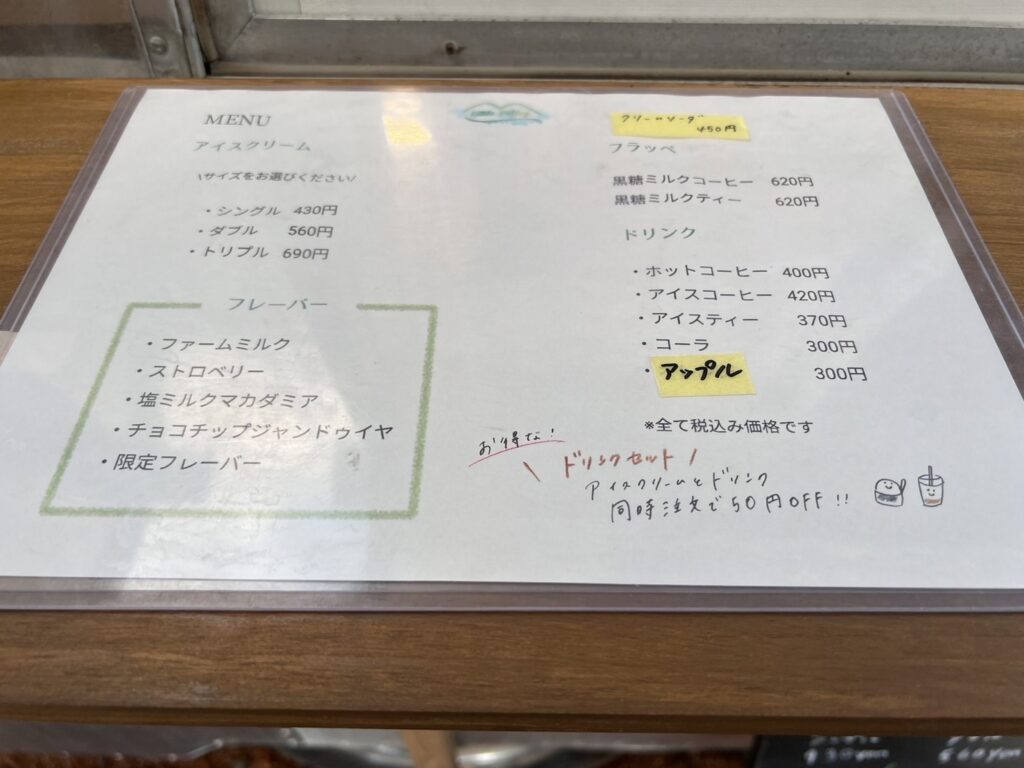 MENU
アイスクリーム
\サイズをお選びください/
・シングル 430円
・ダブル 560円
・トリプル 690円
フレーバー
・ファームミルク
・ストロベリー
・塩ミルクマカダミア
・チョコチップジャンドゥイヤ
・限定フレーバー
クリームソーダ
450円
フラッペ
黒糖ミルクコーヒー 620円
黒糖ミルクティー 620円
ドリンク
・ホットコーヒー 400円
・アイスコーヒー 420円
・アイスティー 370円
・コーラ 300円
・アップル 300円
※全て税込み価格です
お得な!
\ ドリンクセット /
アイスクリームとドリンク
同時注文で50円OFF!!